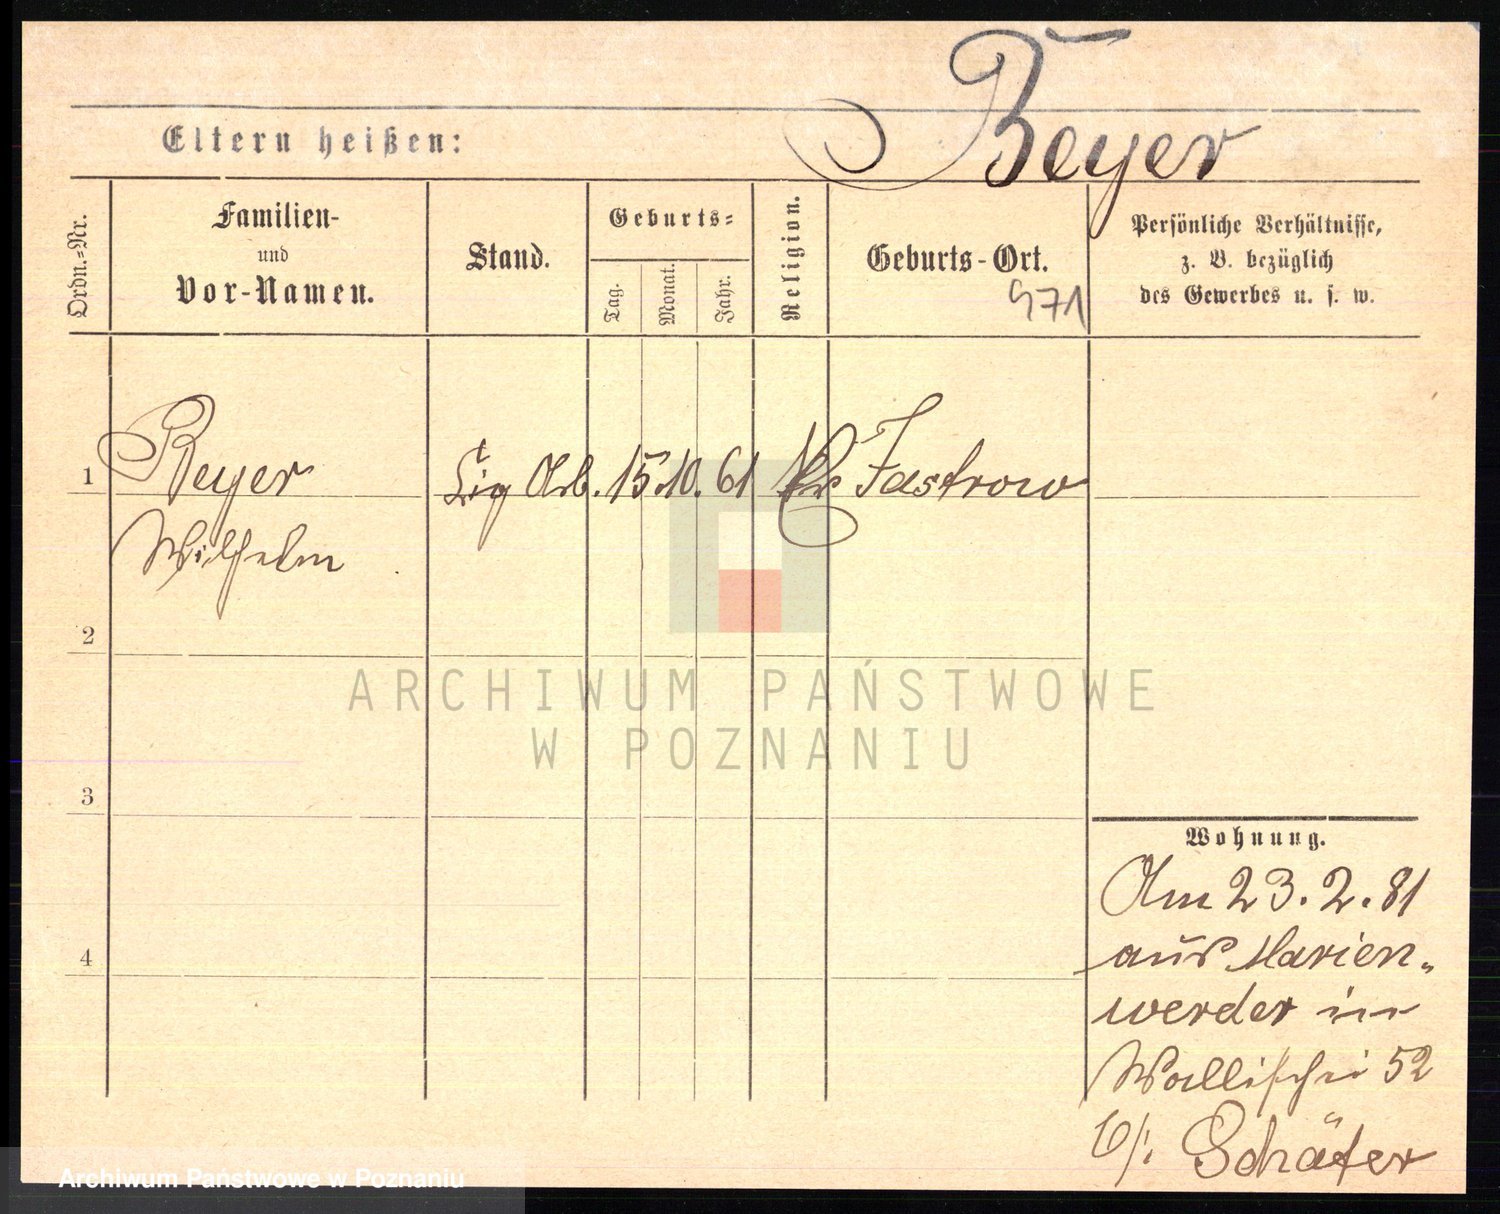 Beyer
Eltern heißen:
Ordn.-Nr.
Familien-
und
Vor-Namen.
Stand.
Geburts-
Tag.
Monat.
Jahr.
Religion.
Geburts-Ort.
971
Persönliche Verhältnisse,
z. B. bezüglich
des Gewerbes u. s. w.
1 Beyer Cig Arb. 15. 10. 61 Jastrow
Wilhelm
2
3
4
Wohnung.
Am 23. 2. 81
aus Marien-
werder in
Wallischei 52
b/: Schäfer
ARCHIWUM PAŃSTWOWE
W POZNANIU
Archiwum Państwowe w Poznaniu